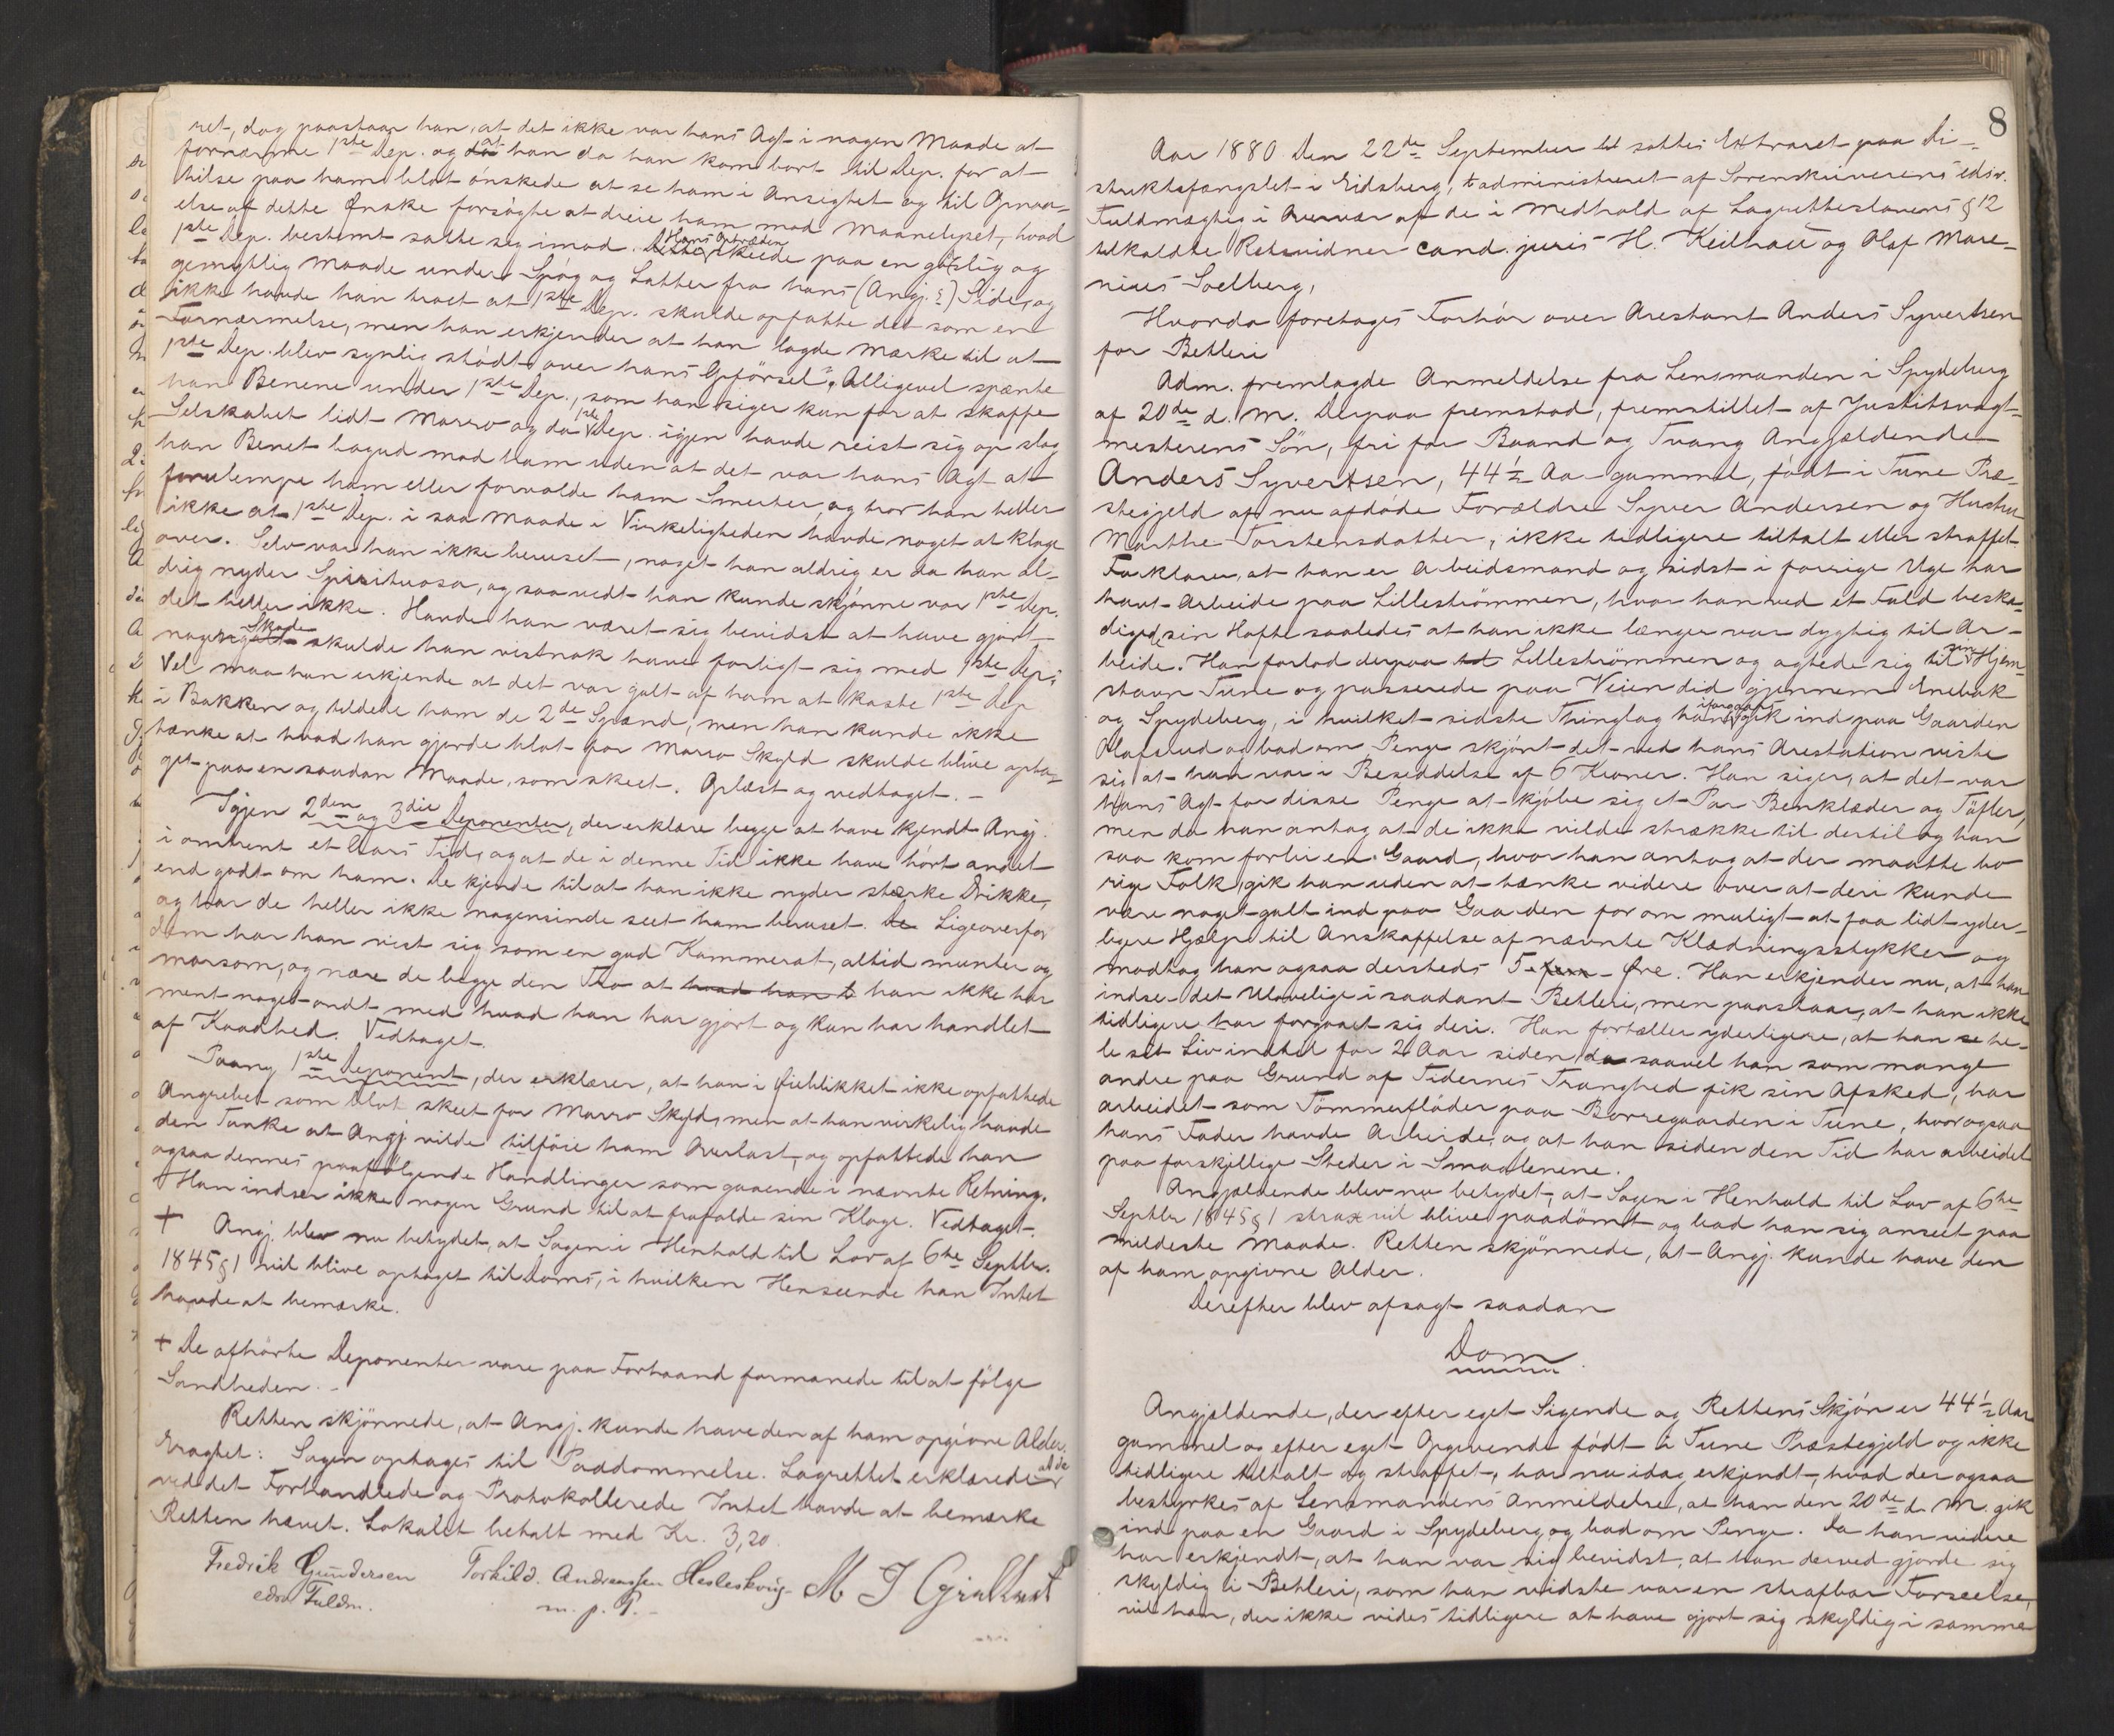 ret, dog paastaar han, at det ikke var hans Agt i nogen Maade at
fornærme 1ste Dep. og at han da han kom bort til Dep. for at
hilse paa ham blot ønskede at se ham i Ansigtet og til Opnaa-
else af dette Ønske forsøgte at dreie ham mod Maanelyset, hvad
1ste Dep. bestemt satte sig imod. Hans Optræden skeede paa en gotslig og
gemytlig Maade under Spøg og Latter fra hans (Angj.s) Side, og
ikke havde han troet at 1ste Dep. skulde opfatte det som en
Fornærmelse, men han erkjender at han lagde Mærke til at
1ste Dep. blev synlig stødt over hans Opførsel. Alligevel spændte
han Benene under 1ste Dep., som han siger kun for at skaffe
Selskabet lidt Morro og da 1ste Dep. igjen havde reist sig op slog
han Benet bagud mod ham uden at det var hans Agt at
forulempe ham eller forvolde ham Smerter, og tror han heller
ikke at 1ste Dep. i saa Maade i Virkeligheden havde noget at klage
over. Selv var han ikke beruset, noget han aldrig er da han al-
drig nyder Spirituosa, og saavidt han kunde skjønne var 1ste Dep.
det heller ikke. Havde han været sig bevidst at have gjort
nogen Skade skulde han vistnok have forligt sig med 1ste Dep.;
Vel maa han erkjende at det var galt af ham at kaste 1ste Dep
i Bakken og tildele ham de 2de Spænd, men han kunde ikke
tænke at hvad han gjorde blot for Morro Skyld skulde blive opta-
get paa en saadan Maade, som skeet. Oplæst og vedtaget. –
Igjen 2den og 3die Deponenter, der erklære begge at have kjendt Angj.
i omtrent et Aars Tid, og at de i denne Tid ikke have hørt andet
end godt om ham. De kjende til at han ikke nyder stærke Drikke,
og har de heller ikke nogensinde seet ham beruset. Ligeoverfor
dem har han vist sig som en god Kammerat, altid munter og
morsom, og nære de begge den Tro at han ikke har
ment noget ondt med hvad han har gjort og kun har handlet
af Kaadhed. Vedtaget.
Paany 1ste Deponent, der erklærer, at han i Øieblikket ikke opfattede
Angrebet som blot skeet for Morro Skyld, men at han virkelig havde
den Tanke at Angj. vilde tilføie ham Overlast, og opfattede han
ogsaa dennes paafølgende Handlinger som gaaende i nævnte Retning.
Han indser ikke nogen Grund til at frafalde sin Klage. Vedtaget.
+ Angj. blev nu betydet, at Sagen i Henhold til Lov af 6te Septbr.
1845 § 1 vil blive optaget til Doms, i hvilken Henseende han Intet
havde at bemærke.
+ De afhørte Deponenter vare paa Forhaand formanede til at følge
Sandheden. –
Retten skjønnede, at Angj. kunde have den af ham opgivne Alder.
Eragtet: Sagen optages til Paadømmelse. Lagrettet erklærede at de
ved det Forhandlede og Protokollerede Intet havde at bemærke
Retten hævet. Lokalet betalt med Kr. 3,20.
Fredrik Gundersen Torkild. Andreassen Hesleskoug M J Grålum
edsv Fuldm. m. p. P.
8
Aar 1880 Den 22de September sattes Extraret paa Di-
striktsfængslet i Eidsberg, administreret af Sorenskriverens edsv.
Fuldmægtig i Overvær af de i Medhold af Lagrettelovens § 12
tilkaldte Retsvidner cand. juris H. Keilhau og Olaf Mare-
nius Soelberg,
Hvorda foretages Forhør over Arrestant Anders Syvertsen
for Betleri
Adm. fremlagde Anmeldelse fra Lensmanden i Spydeberg
af 20de d. M. Derpaa fremstod, fremstillet af Justitsvagt-
mesterens Søn, fri for Baand og Tvang Angjældende
Anders Syvertsen, 44½ Aar gammel, født i Tune Præ-
stegjeld af nu afdøde Forældre Syver Andersen og Hustru
Marthe Torstensdatter, ikke tidligere tiltalt eller straffet.
Forklarer, at han er Arbeidsmand og sidst i forrige Uge har
havt Arbeide paa Lillestrømmen, hvor han ved et Fald beska-
diged sin Hofte saaledes at han ikke længer var dygtig til Ar-
beide. Han forlod derpaa Lillestrømmen og agtede sig til sin Hjem-
stavn Tune og passerede paa Veien did gjennem Enebak
og Spydeberg, i hvilket sidste Thinglag han iforgaars gik ind paa Gaarden
Olaserud og bad om Penge skjønt det ved hans Arestation viste
sig at han var i Besiddelse af 6 Kroner. Han siger, at det var
hans Agt for disse Penge at kjøbe sig et Par Benklæder og Tøfler,
men da han antog at de ikke vilde strække til dertil og han
saa kom forbi en Gaard, hvor han antog at der maatte bo
rige Folk, gik han uden at tænke videre over at deri kunde
være noget galt ind paa Gaarden for om muligt at faa lidt yder-
ligere Hjælp til Anskaffelse af nævnte Klædningsstykker og
modtog han ogsaa dersteds 5 – fem – Øre. Han erkjender nu, at han
indser det Ulovelige i saadant Betleri, men paastaar, at han ikke
tidligere har forgaaet sig deri. Han fortæller yderligere, at han he-
le sit Liv indtil for 2 Aar siden da saavel han som mange
andre paa Grund af Tidernes Tranghed fik sin Afsked, har
arbeidet som Tømmerfløder paa Borregaarden i Tune, hvor ogsaa
hans Fader havde Arbeide, og at han siden den Tid har arbeidet
paa forskjellige Steder i Smaalenene.
Angjældende blev nu betydet, at Sagen i Henhold til Lov af 6te
Septbr 1845 § 1 strax vil blive paadømt og bad han sig anseet paa
mildeste Maade. Retten skjønnede, at Angj. kunde have den
af ham opgivne Alder.
Derefter blev afsagt saadan
Dom.
Angjældende, der efter eget Sigende og Rettens Skjøn er 44½ Aar
gammel og efter eget Opgivende født i Tune Præstegjeld og ikke
tidligere tiltalt og straffet, har nu idag erkjendt, hvad der ogsaa
bestyrkes af Lensmandens Anmeldelse, at han den 20de d. M. gik
ind paa en Gaard i Spydeberg og bad om Penge. Da han videre
har erkjendt, at han var sig bevidst, at han derved gjorde sig
skyldig i Betleri, som han vidste var en strafbar Forseelse,
vil han, der ikke vides tidligere at have gjort sig skyldig i samme